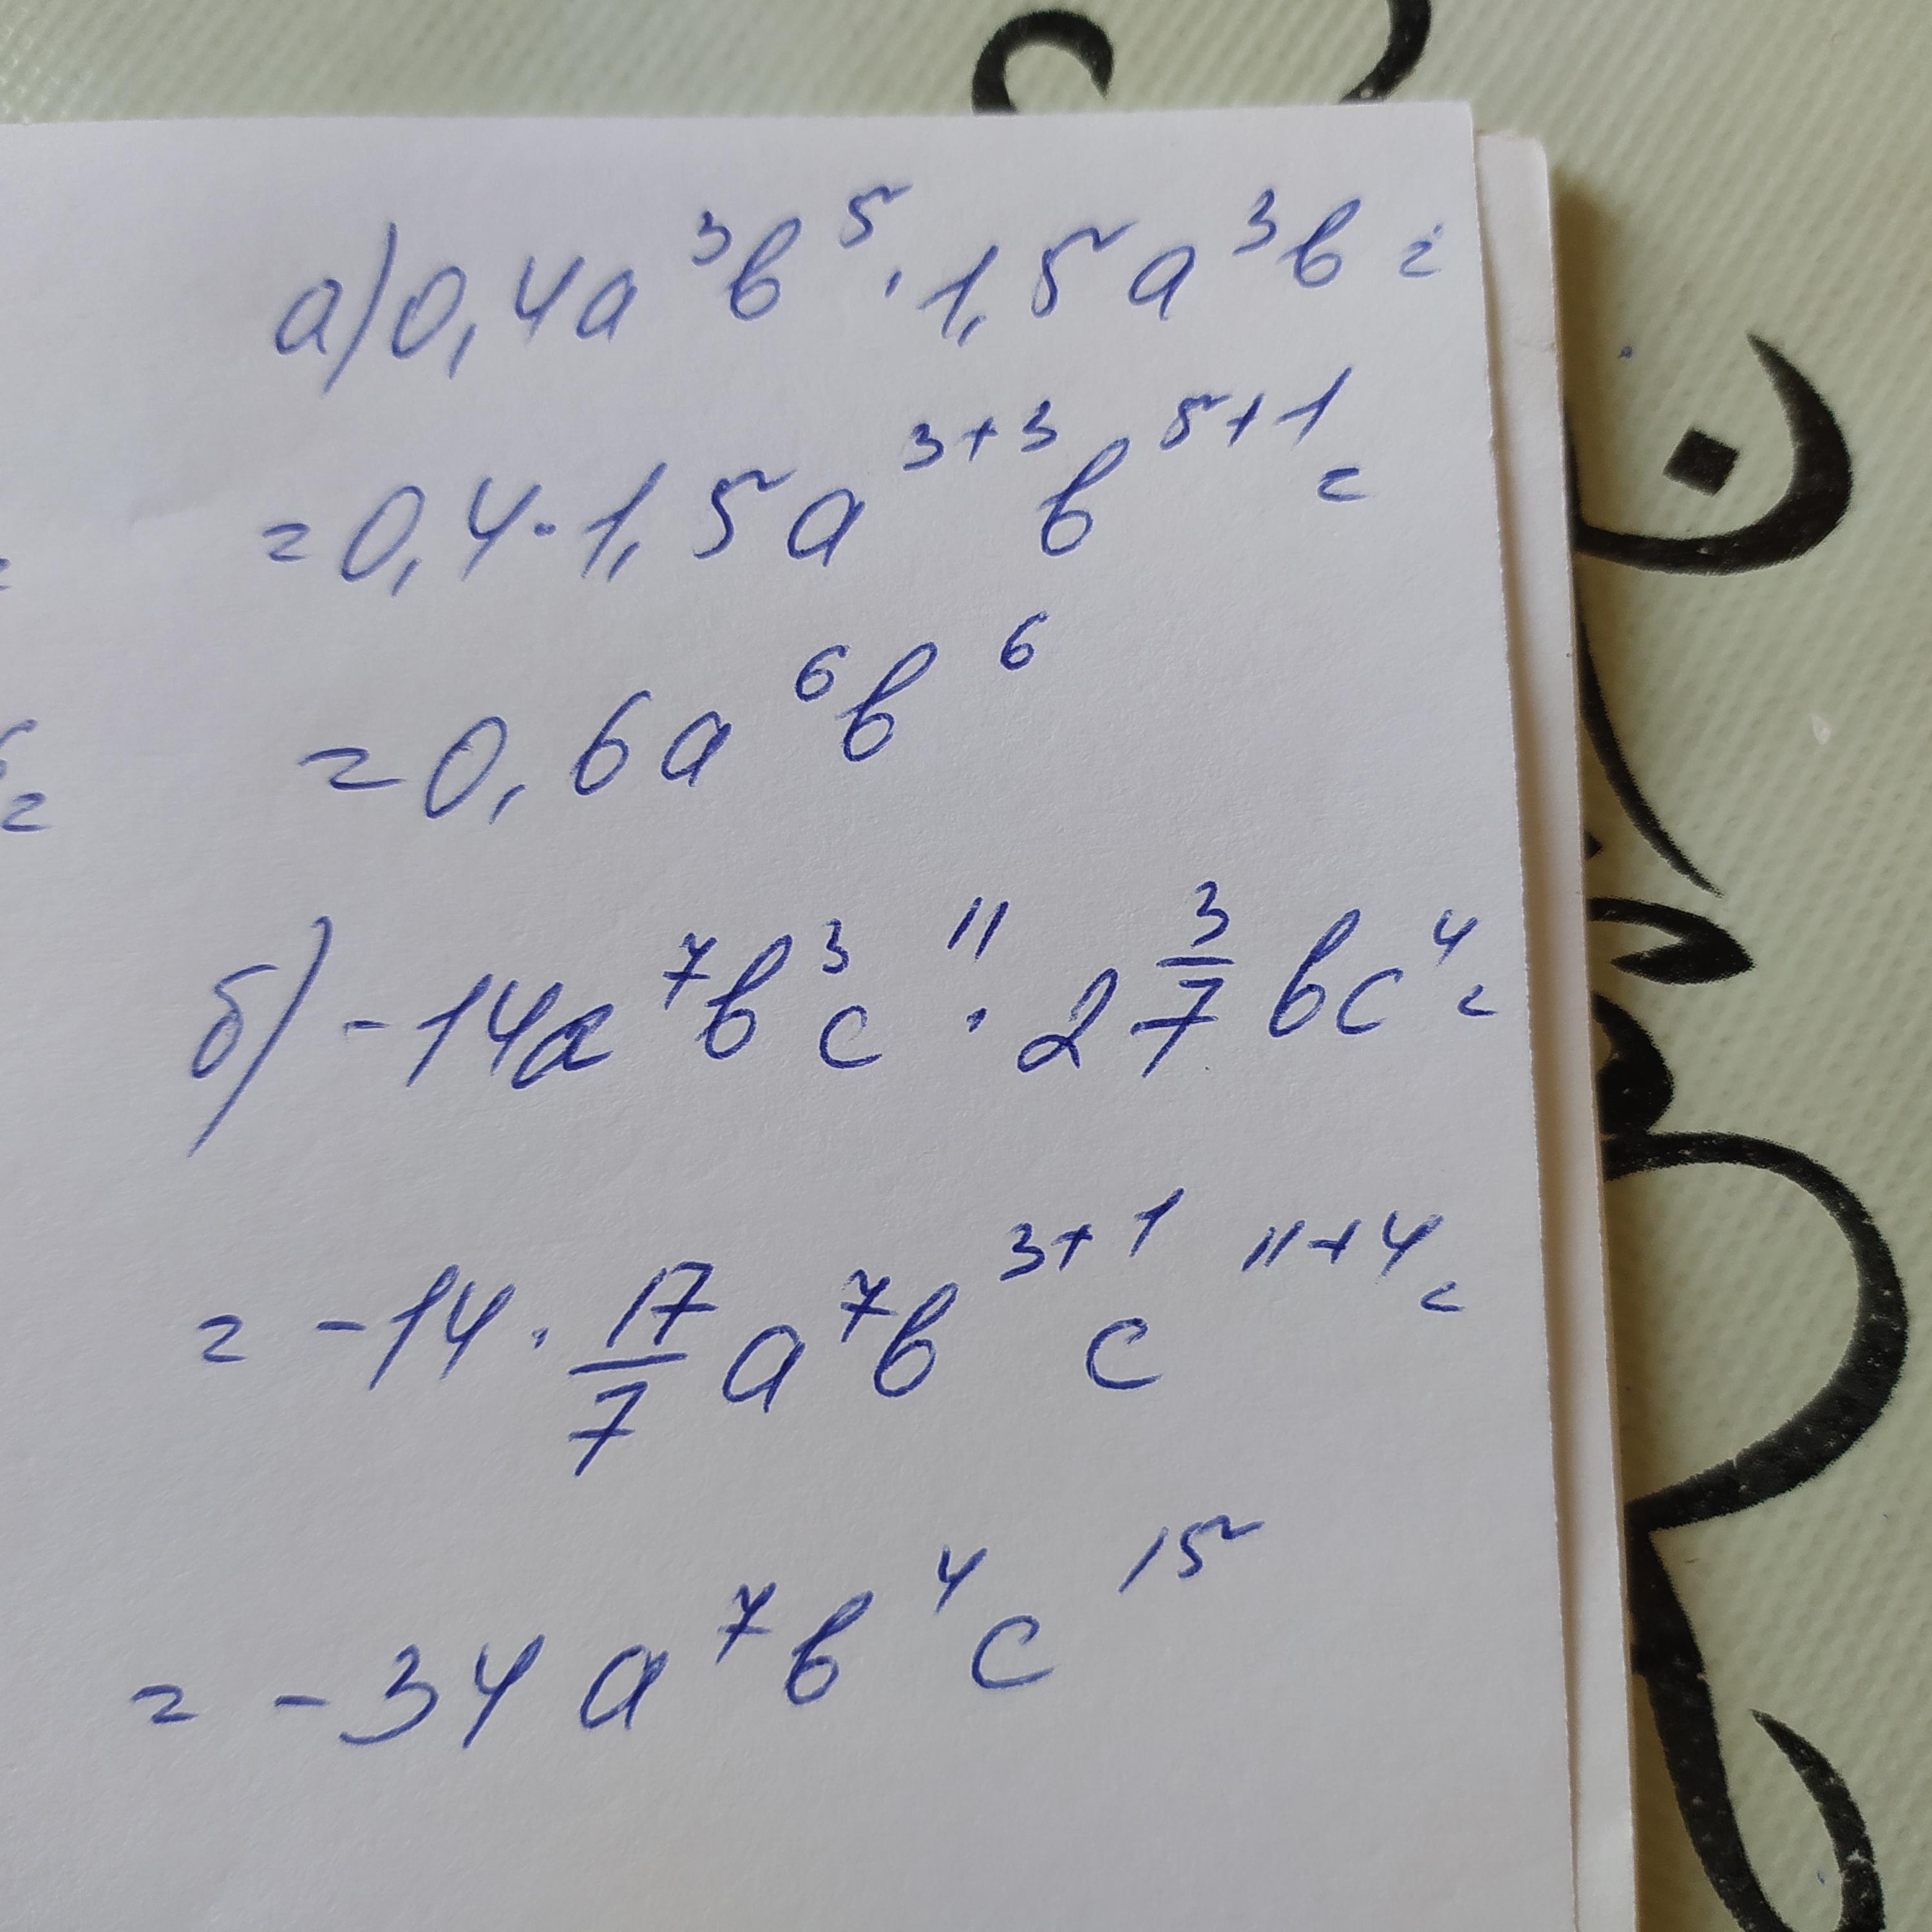 а) 0,4a³b⁵ · 1,5a³b =
= 0,4 · 1,5a³⁺³b⁵⁺¹ =
= 0,6a⁶b⁶
б) -14a⁷b³c¹¹ · 2 3/7 bc⁴ =
= -14 · 17/7 a⁷b³⁺¹c¹¹⁺⁴ =
= -34a⁷b⁴c¹⁵